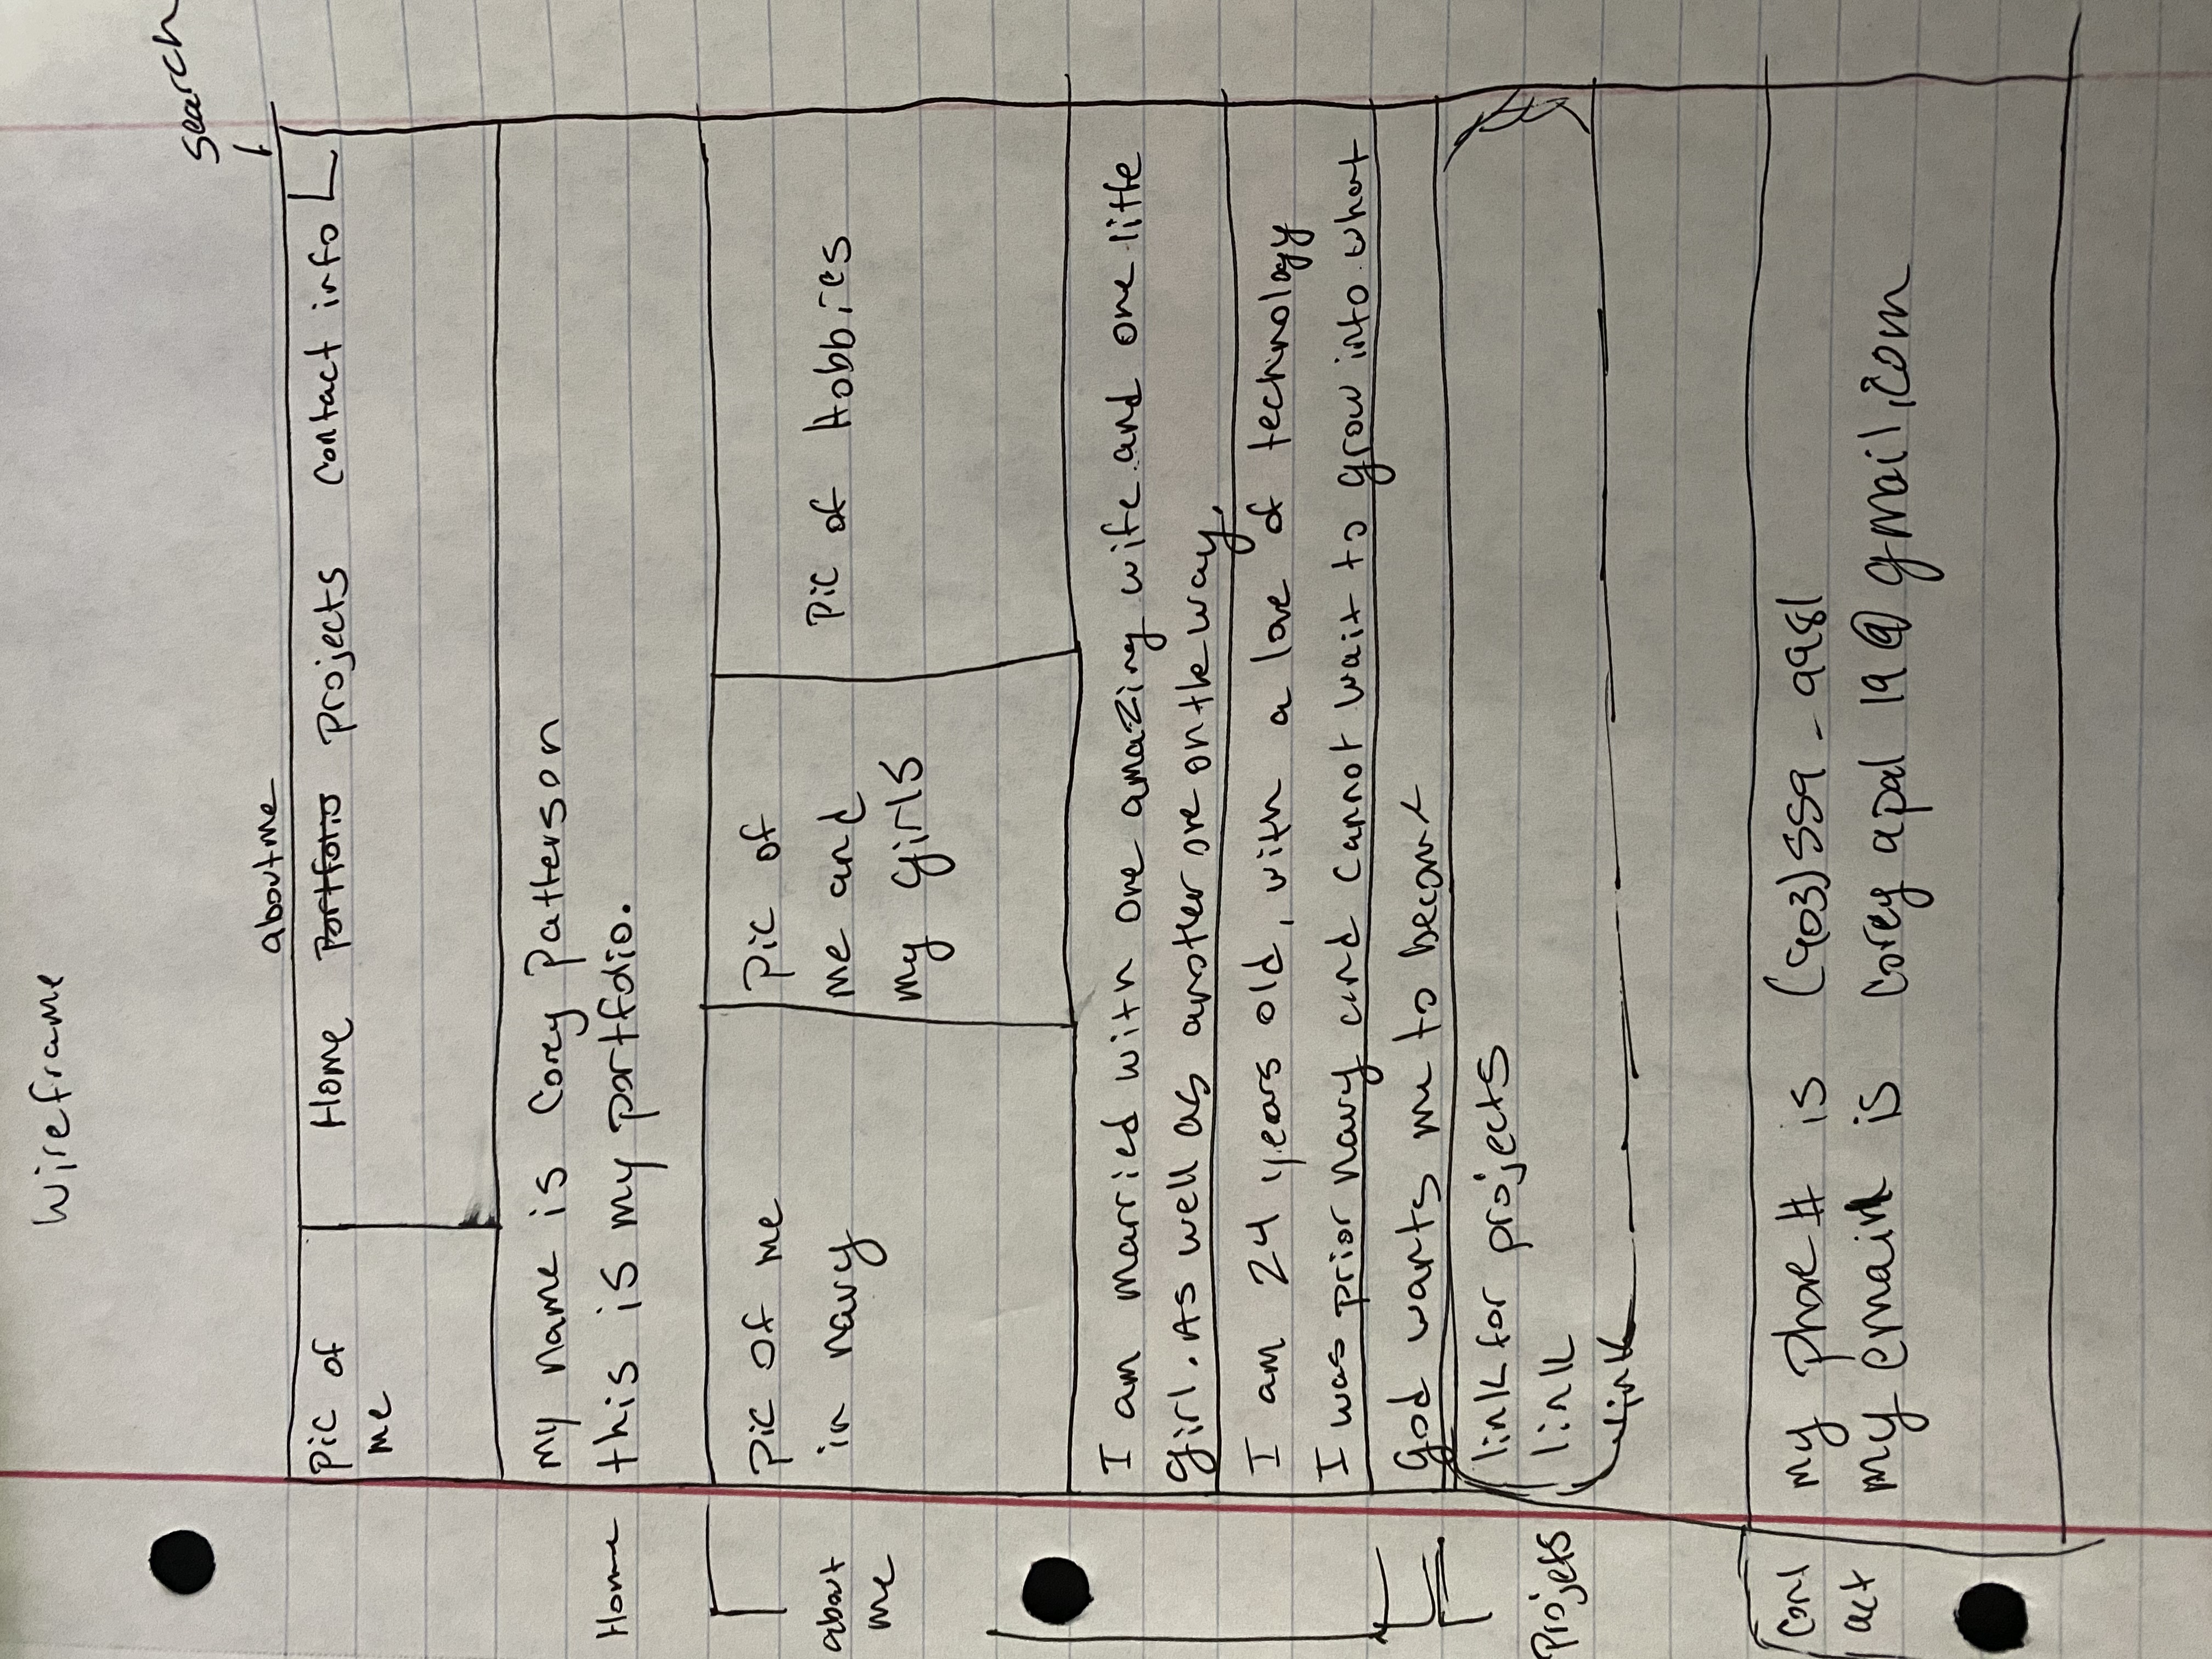 Wireframe
search
about me
pic of
me
Home Portfolio projects contact info
my name is Corey Patterson
Home
this is my portfolio.
pic of me
in navy
pic of
me and
my girls
pic of Hobbies
about
me
I am married with one amazing wife and one little
girl. As well as another one on the way.
I am 24 years old, with a love of technology
I was prior navy and cannot wait to grow into what
god wants me to become
link for projects
link
link
Projets
Cont
act
my phone # is (903)559-9981
my email is corey apal 19@gmail.com